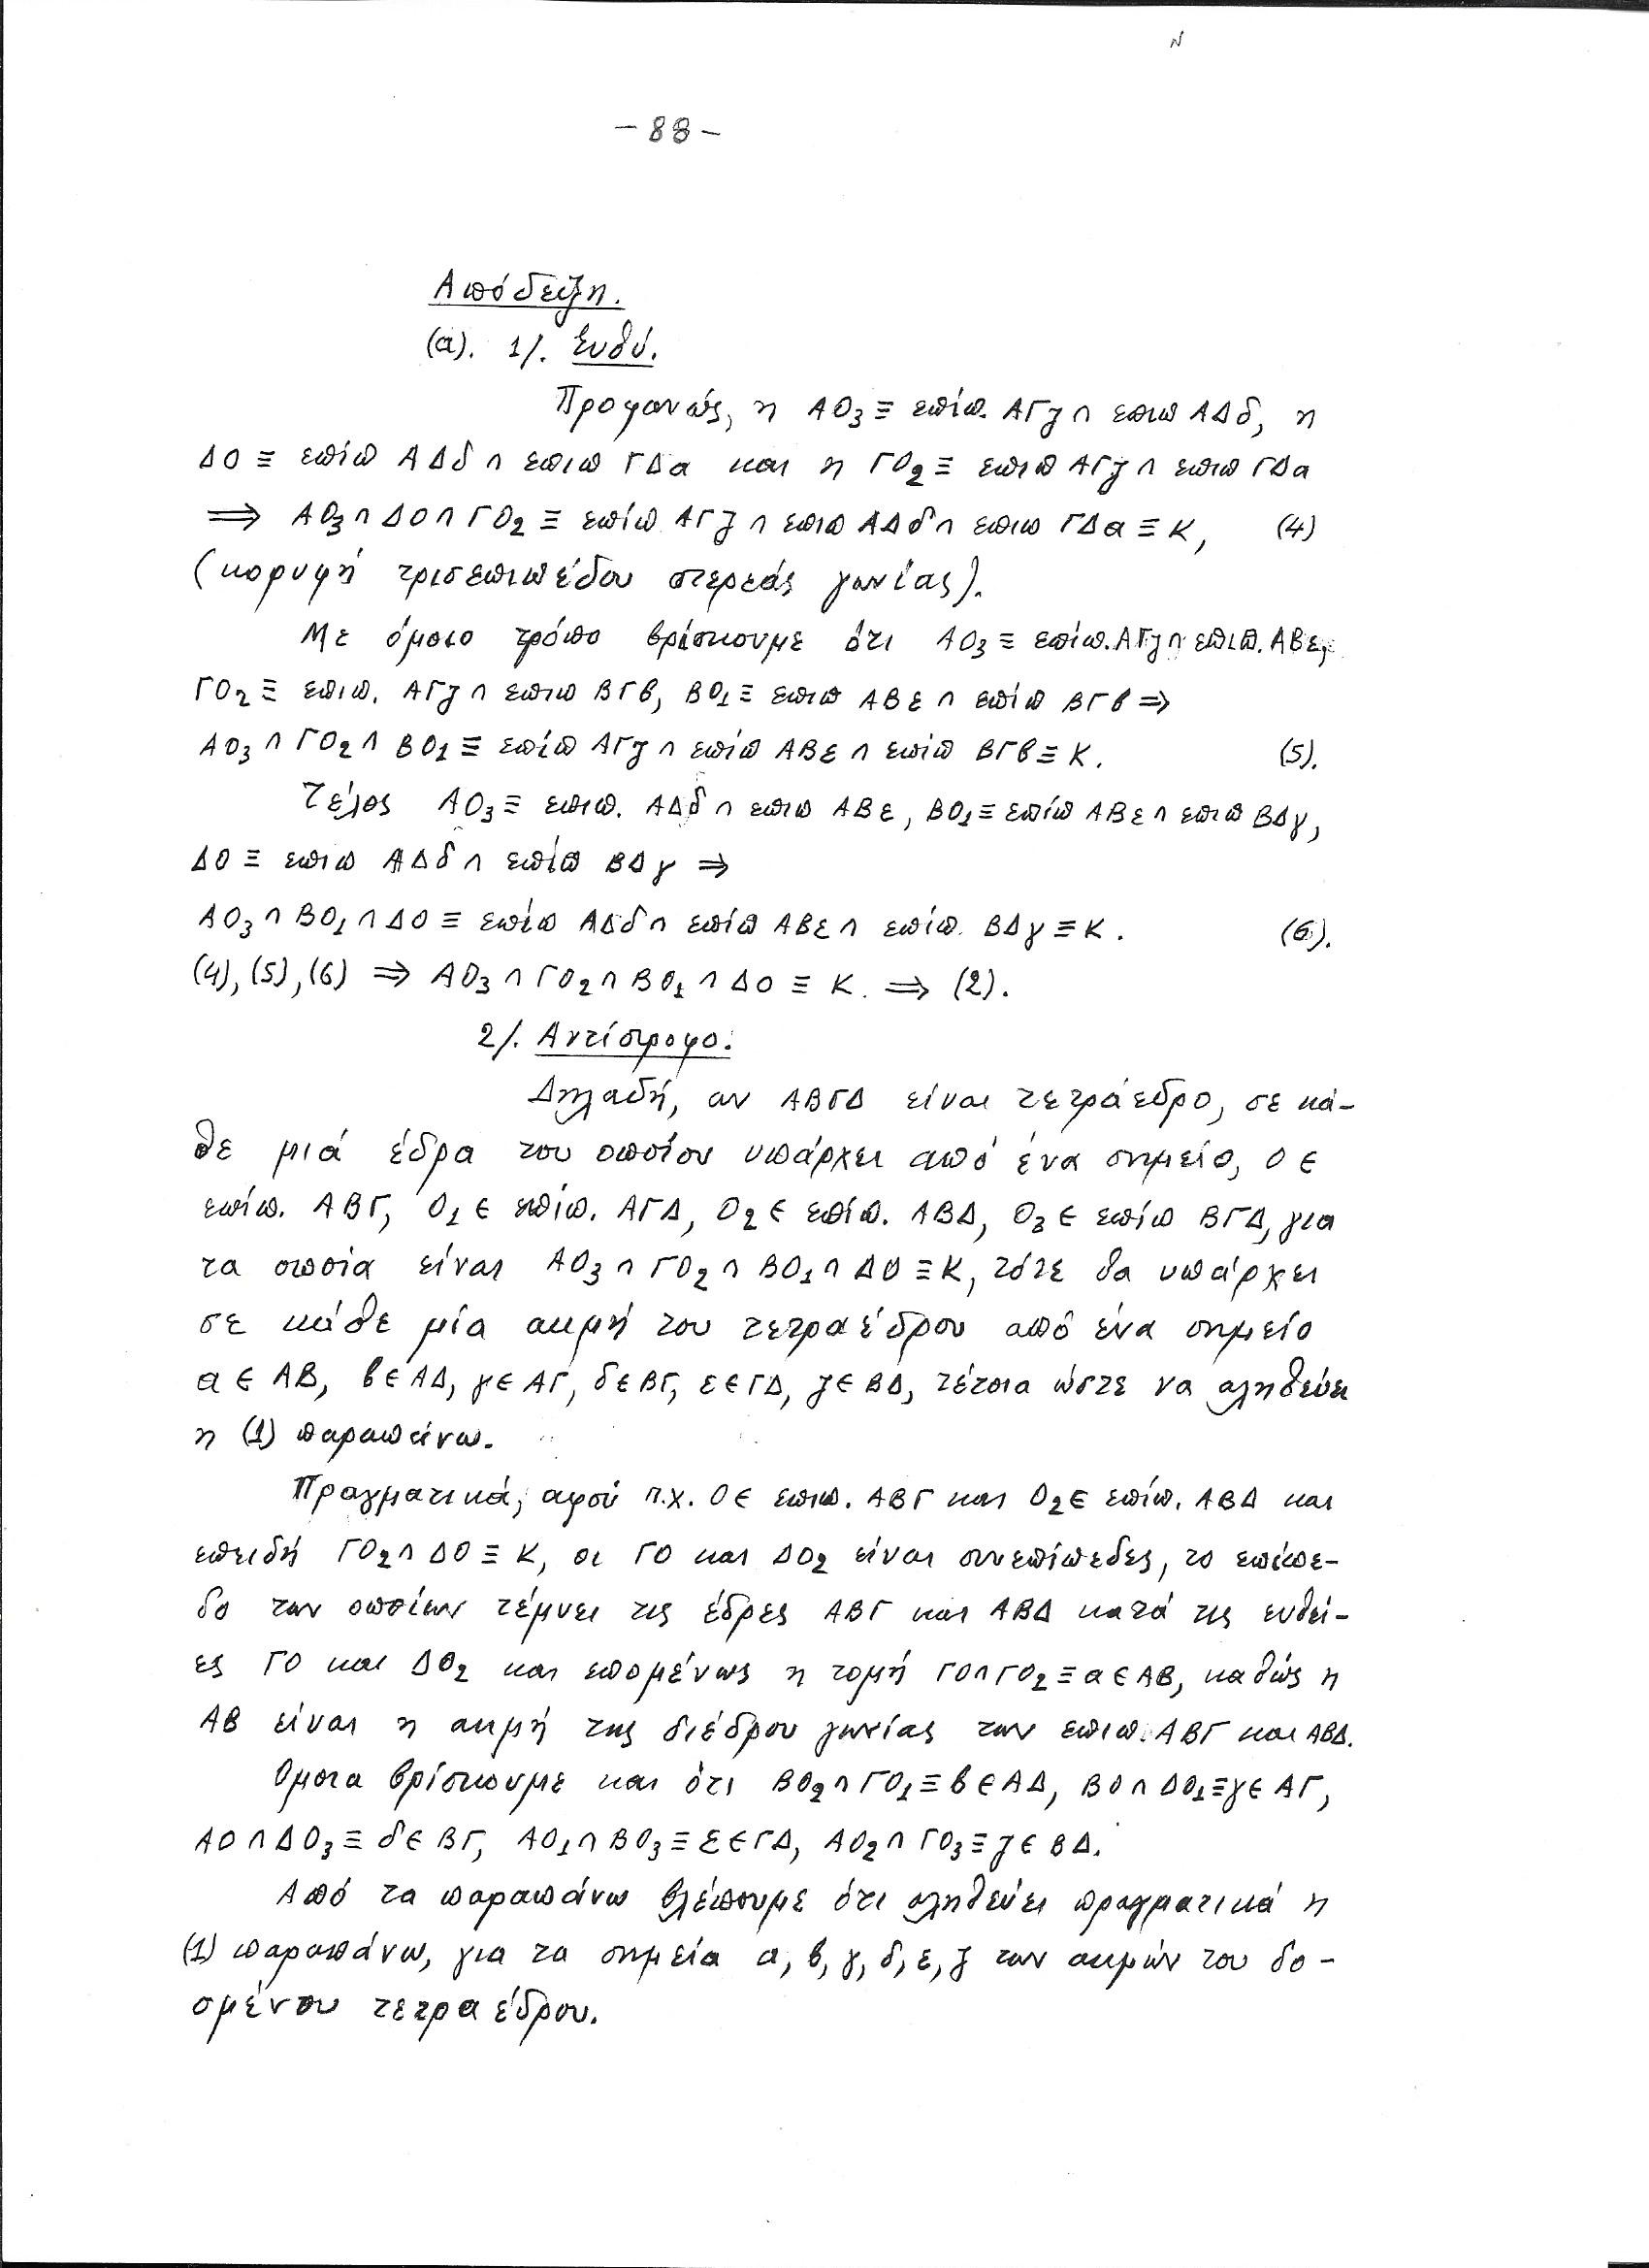 - 88 -
Απόδειξη.
(α). 1/. Ευθύ.
Προφανώς, η ΑΟ₃ ≡ επίπ. ΑΓζ ∩ επιπ ΑΔδ, η
ΔΟ ≡ επίπ ΑΔδ ∩ επιπ ΓΔα και η ΓΟ₂ ≡ επιπ ΑΓζ ∩ επιπ ΓΔα
⇒ ΑΟ₃ ∩ ΔΟ ∩ ΓΟ₂ ≡ επίπ ΑΓζ ∩ επιπ ΑΔδ ∩ επιπ ΓΔα ≡ Κ, (4)
(κορυφή τρισεπιπέδου στερεάς γωνίας).
Με όμοιο τρόπο βρίσκουμε ότι ΑΟ₃ ≡ επίπ. ΑΓζ ∩ επιπ. ΑΒε,
ΓΟ₂ ≡ επιπ. ΑΓζ ∩ επιπ ΒΓβ, ΒΟ₁ ≡ επιπ ΑΒε ∩ επίπ ΒΓβ ⇒
ΑΟ₃ ∩ ΓΟ₂ ∩ ΒΟ₁ ≡ επίπ ΑΓζ ∩ επίπ ΑΒε ∩ επίπ ΒΓβ ≡ Κ. (5).
Τέλος ΑΟ₃ ≡ επιπ. ΑΔδ ∩ επιπ ΑΒε, ΒΟ₁ ≡ επίπ ΑΒε ∩ επιπ ΒΔγ,
ΔΟ ≡ επιπ ΑΔδ ∩ επίπ ΒΔγ ⇒
ΑΟ₃ ∩ ΒΟ₁ ∩ ΔΟ ≡ επίπ ΑΔδ ∩ επίπ ΑΒε ∩ επίπ. ΒΔγ ≡ Κ. (6).
(4), (5), (6) ⇒ ΑΟ₃ ∩ ΓΟ₂ ∩ ΒΟ₁ ∩ ΔΟ ≡ Κ. ⇒ (2).
2/. Αντίστροφο.
Δηλαδή, αν ΑΒΓΔ είναι τετράεδρο, σε κά-
θε μιά έδρα του οποίου υπάρχει από ένα σημείο, Ο ∈
επίπ. ΑΒΓ, Ο₁ ∈ επίπ. ΑΓΔ, Ο₂ ∈ επίπ. ΑΒΔ, Ο₃ ∈ επίπ ΒΓΔ, για
τα οποία είναι ΑΟ₃ ∩ ΓΟ₂ ∩ ΒΟ₁ ∩ ΔΟ ≡ Κ, τότε θα υπάρχει
σε κάθε μία ακμή του τετραέδρου από ένα σημείο
α ∈ ΑΒ, β ∈ ΑΔ, γ ∈ ΑΓ, δ ∈ ΒΓ, ε ∈ ΓΔ, ζ ∈ ΒΔ, τέτοια ώστε να αληθεύει
η (1) παραπάνω.
Πραγματικά, αφού π.χ. Ο ∈ επιπ. ΑΒΓ και Ο₂ ∈ επίπ. ΑΒΔ και
επειδή ΓΟ₂ ∩ ΔΟ ≡ Κ, οι ΓΟ και ΔΟ₂ είναι συνεπίπεδες, το επίπε-
δο των οποίων τέμνει τις έδρες ΑΒΓ και ΑΒΔ κατά τις ευθεί-
ες ΓΟ και ΔΟ₂ και επομένως η τομή ΓΟ ∩ ΓΟ₂ ≡ α ∈ ΑΒ, καθώς η
ΑΒ είναι η ακμή της διέδρου γωνίας των επιπ. ΑΒΓ και ΑΒΔ.
Όμοια βρίσκουμε και ότι ΒΟ₂ ∩ ΓΟ₁ ≡ β ∈ ΑΔ, ΒΟ ∩ ΔΟ₁ ≡ γ ∈ ΑΓ,
ΑΟ ∩ ΔΟ₃ ≡ δ ∈ ΒΓ, ΑΟ₁ ∩ ΒΟ₃ ≡ ε ∈ ΓΔ, ΑΟ₂ ∩ ΓΟ₃ ≡ ζ ∈ ΒΔ.
Από τα παραπάνω βλέπουμε ότι αληθεύει πραγματικά η
(1) παραπάνω, για τα σημεία α, β, γ, δ, ε, ζ των ακμών του δο-
σμένου τετραέδρου.